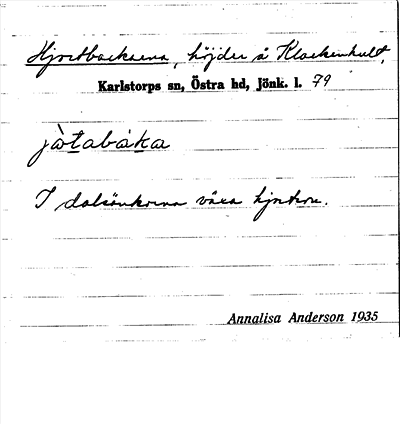 Hjortbackarna, höjder å Klackenhult,
Karlstorps sn, Östra hd, Jönk. l. 79
jòtabàka
I dalsänkorna växa hjortron.
Annalisa Anderson 1935